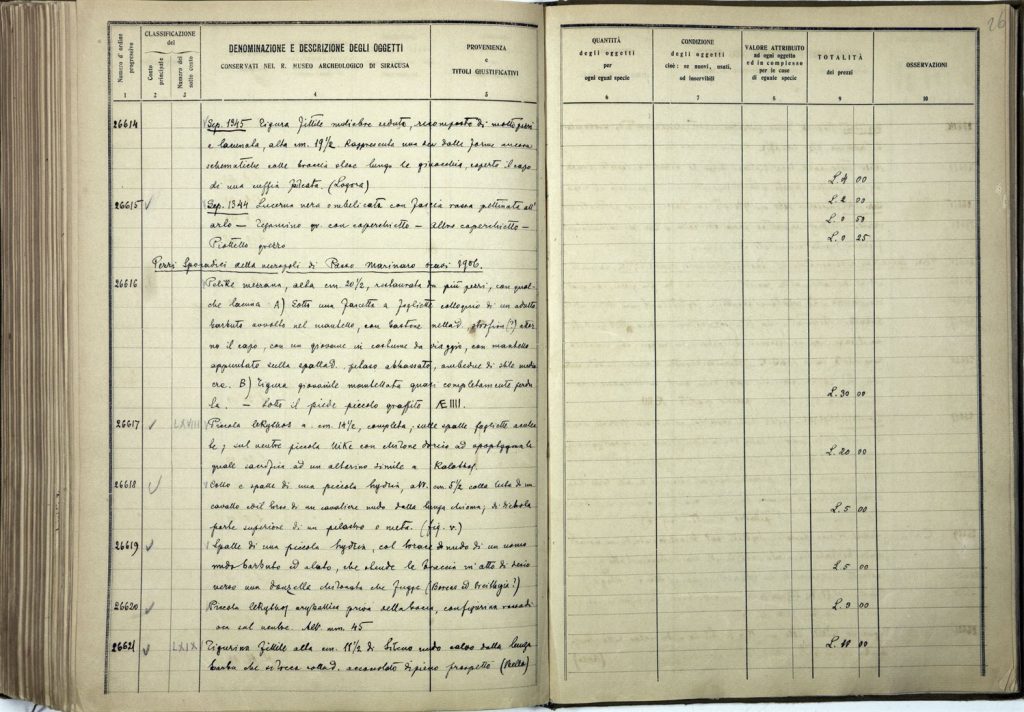 26
Numero d'ordine progressivo
CLASSIFICAZIONE del
Conto principale
Numero del sotto conto
DENOMINAZIONE E DESCRIZIONE DEGLI OGGETTI
CONSERVATI NEL R. MUSEO ARCHEOLOGICO DI SIRACUSA
PROVENIENZA
e
TITOLI GIUSTIFICATIVI
QUANTITÀ
degli oggetti
per
ogni egual specie
CONDIZIONE
degli oggetti
cioè: se nuovi, usati,
od inservibili
VALORE ATTRIBUITO
ad ogni oggetto
ed in complesso
per le cose
di eguale specie
TOTALITÀ
dei prezzi
OSSERVAZIONI
1 2 3 4 5 6 7 8 9 10
26614 Sep. 1345 Figura fittile muliebre seduta, ricomposta di molti pezzi
e lacunata, alta cm. 19 1/2. Rappresenta una dea dalle forme ancora
schematiche colle braccia stese lungo le ginocchia, coperto il capo
di una cuffia (Logora) L. 4 00
26615 Sep. 1344 Lucerna nera ombelicata con fascia rossa all' L. 2 00
orlo — Tegamino gr. con coperchietto — altro coperchietto — L. 0 50
Piattello grezzo L. 0 25
Pezzi Sporadici della necropoli di Passo Marinaro scavi 1906.
26616 Pelike mezzana, alta cm. 20 1/2, restaurata da più pezzi, con qual-
che lacuna. A) Sotto una fascetta a fogliette colloquio di un adulto
barbuto avvolto nel mantello, con bastone nella d. (?) attor-
no il capo, con un giovane in costume da viaggio, con mantello
appuntato sulla spalla d. petaso abbassato, ambedue di stile medio-
cre. B) Figura giovanile mantellata quasi completamente perdu-
ta. — Sotto il piede piccolo graffito L. 30 00
26617 LXVIII Piccola lekythos a. cm. 14 1/2, completa; sulle spalle fogliette
sul ventre piccola Nike con chitone dorico ad apoptygma la
quale sacrifica ad un altarino simile a Kalathos. L. 20 00
26618 Collo e spalle di una piccola hydria, alt. cm. 5 1/2 colla testa di un
cavallo ed il torso di un cavaliere nudo dalla lunga chioma; a
parte superiore di un pilastro o meta. (fig. v.) L. 5 00
26619 Spalle di una piccola hydria, col torace di nudo di un uomo
nudo barbuto ed alato, che stende le braccia in atto di
verso una donzella chitonata che fugge (Boreas ed Oreithyia?) L. 5 00
26620 Piccola lekythos aryballica priva della bocca, con figurina
sul ventre. Alt. mm. 45 L. 3 00
26621 LXIX Figurina fittile alta cm. 11 1/2 di Sileno nudo calvo dalla lunga
barba che si tocca colla d. accosciato di pieno prospetto (Bella) L. 10 00